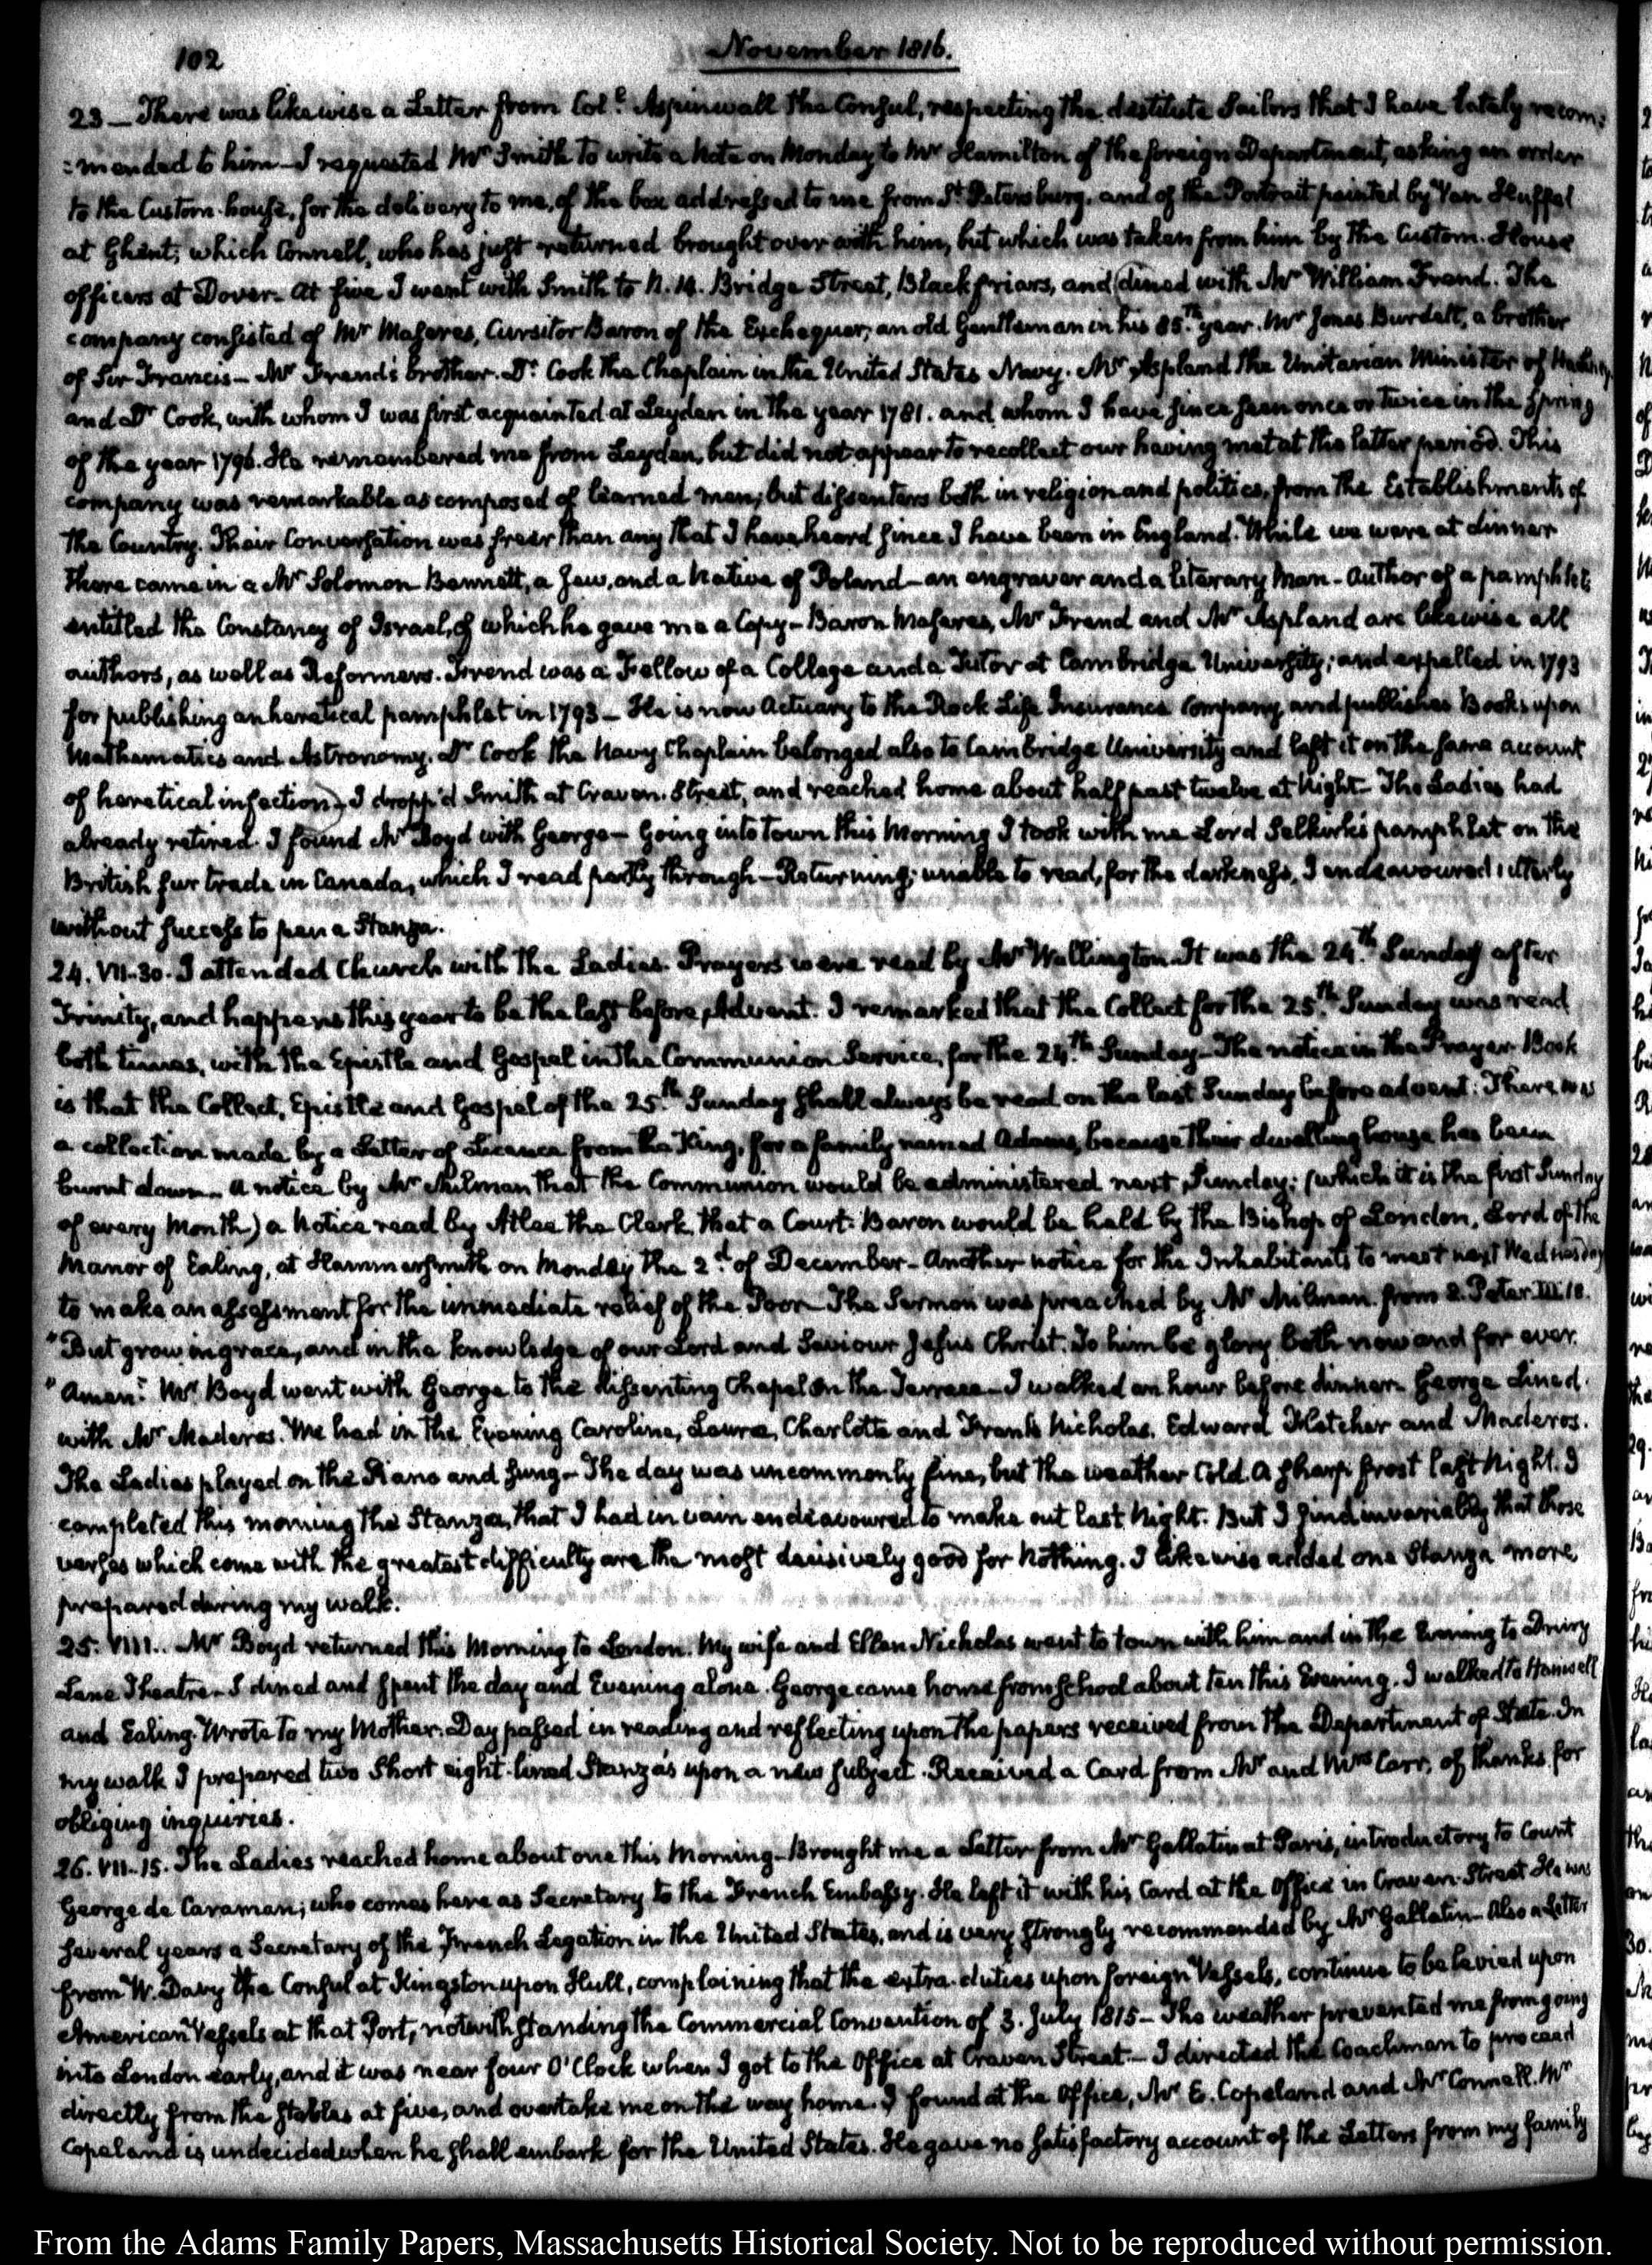 102
November 1816.
23 — There was likewise a Letter from Col.l Aspinwall the Consul, respecting the destitute Sailors that I have lately recom:
:mended to him — I requested Mr Smith to write a Note on Monday to Mr Hamilton of the foreign Department, asking an order
to the Custom-house, for the delivery to me, of the box addressed to me from St Petersburg, and of the Portrait painted by Van Huffel
at Ghent; which Connell, who has just returned brought over with him, but which was taken from him by the Custom-House
officers at Dover. At five I went with Smith to N. 14. Bridge Street, Blackfriars, and dined with Mr William Frend. The
company consisted of Mr Maseres, Cursitor Baron of the Exchequer; an old Gentleman in his 85.th year. Mr Jones Burdett, a brother
of Sir Francis — Mr Frend's brother. Dr Cook the Chaplain in the United States Navy. Mr Aspland the Unitarian Minister of Hackney,
and Dr Cook, with whom I was first acquainted at Leyden in the year 1781. and whom I have since seen once or twice in the Spring
of the year 1796. He remembered me from Leyden, but did not appear to recollect our having met at the latter period. This
company was remarkable as composed of learned men; but dissenters both in religion and politics, from the Establishments of
the Country. Their Conversation was freer than any that I have heard since I have been in England. While we were at dinner
there came in a Mr Solomon Bennett, a Jew, and a Native of Poland — an engraver and a literary Man — Author of a pamphlet
entitled the Constancy of Israel, of which he gave me a Copy — Baron Maseres, Mr Frend and Mr Aspland are likewise all
authors, as well as Reformers. Frend was a Fellow of a College and a Tutor at Cambridge University; and expelled in 1793
for publishing an heretical pamphlet in 1793 — He is now Actuary to the Rock Life Insurance Company, and publishes Books upon
Mathematics and Astronomy. Dr Cook the Navy Chaplain belonged also to Cambridge University and left it on the same account
of heretical infection — I dropp'd Smith at Craven-Street, and reached home about half past twelve at Night — The Ladies had
already retired. I found Mr Boyd with George — Going into town this Morning I took with me Lord Selkirk's pamphlet on the
British fur trade in Canada, which I read partly through — Returning; unable to read, for the darkness, I endeavoured utterly
without success to pen a Stanza.
24. VII-30. I attended Church with the Ladies. Prayers were read by Mr Wallington. It was the 24.th Sunday after
Trinity, and happens this year to be the last before Advent. I remarked that the Collect for the 25.th Sunday was read
both times, with the Epistle and Gospel in the Communion Service, for the 24.th Sunday — The notice in the Prayer-Book
is that the Collect, Epistle and Gospel of the 25.th Sunday shall always be read on the last Sunday before advent. There was
a collection made by a Letter of Licence from the King, for a family named Adams, because their dwelling house has been
burnt down — A notice by Mr Milman that the Communion would be administered next Sunday; (which it is the first Sunday
of every Month) a Notice read by Atlee the Clerk, that a Court-Baron would be held by the Bishop of London, Lord of the
Manor of Ealing, at Hammersmith on Monday the 2.d of December — Another notice for the Inhabitants to meet next Wednesday
to make an assessment for the immediate relief of the Poor — The Sermon was preached by Mr Milman from 2. Peter III. 18.
"But grow in grace, and in the knowledge of our Lord and Saviour Jesus Christ. To him be glory both now and for ever.
"Amen." Mr Boyd went with George to the dissenting Chapel on the Terrace — I walked an hour before dinner. George dined
with Mr Maderos. We had in the Evening Caroline, Laura, Charlotte and Frank Nicholas, Edward Fletcher and Maderos.
The Ladies played on the Piano and sung — The day was uncommonly fine, but the weather Cold. A sharp frost last Night. I
completed this morning the Stanza, that I had in vain endeavoured to make out last Night. But I find invariably that those
verses which come with the greatest difficulty are the most decisively good for Nothing. I likewise added one Stanza more,
prepared during my walk.
25. VIII.. Mr Boyd returned this Morning to London. My wife and Ellen Nicholas went to town with him and in the Evening to Drury
Lane Theatre — I dined and spent the day and Evening alone. George came home from School about ten this Evening. I walked to Hanwell
and Ealing. Wrote to my Mother. Day passed in reading and reflecting upon the papers received from the Department of State. In
my walk I prepared two short eight-lined Stanza's upon a new subject. Received a Card from Mr and Mrs Carr, of thanks for
obliging inquiries.
26. VII-15. The Ladies reached home about one this Morning — Brought me a Letter from Mr Gallatin at Paris, introductory to Count
George de Caraman; who comes here as Secretary to the French Embassy. He left it with his Card at the Office in Craven-Street He was
several years a Secretary of the French Legation in the United States, and is very strongly recommended by Mr Gallatin — Also a Letter
from W. Davy the Consul at Kingston upon Hull, complaining that the extra-duties upon foreign Vessels, continue to be levied upon
American Vessels at that Port, notwithstanding the Commercial Convention of 3. July 1815 — The weather prevented me from going
into London early, and it was near four O'Clock when I got to the Office at Craven Street — I directed the Coachman to proceed
directly from the stables at five, and overtake me on the way home. I found at the Office, Mr E. Copeland and Mr Connell. Mr
Copeland is undecided when he shall embark for the United States. He gave no satisfactory account of the Letters from my family
From the Adams Family Papers, Massachusetts Historical Society. Not to be reproduced without permission.